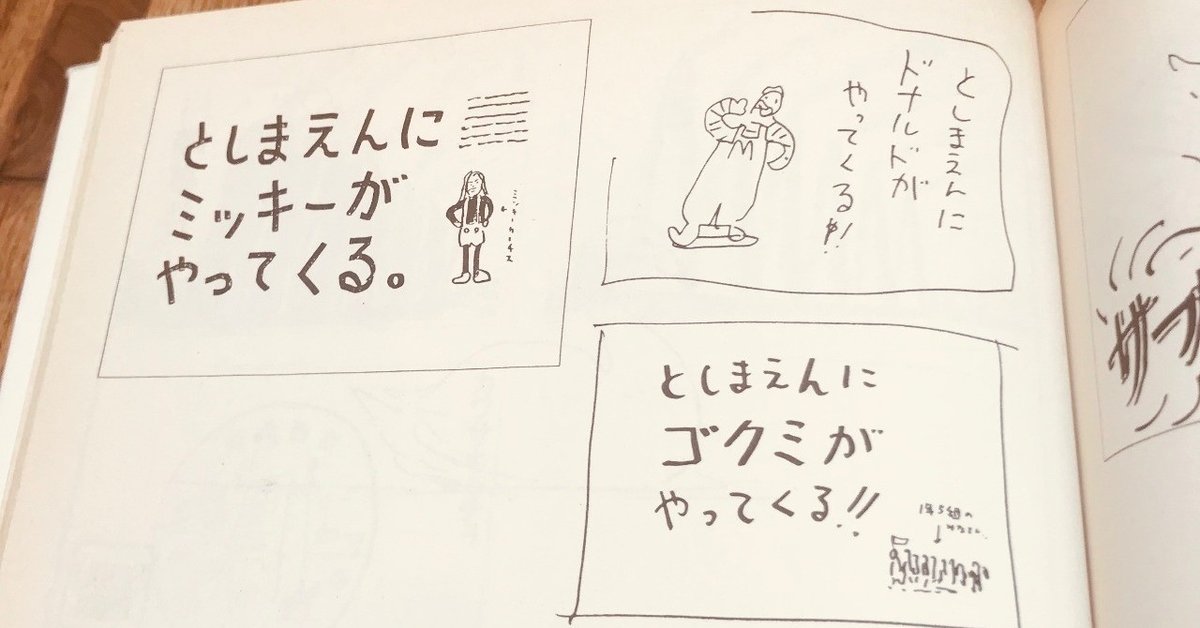 としまえんに
ミッキーが
やってくる。
ミッキーカーチス
としまえんに
ドナルドが
やってくる!!
としまえんに
ゴクミが
やってくる!!
1年5組の